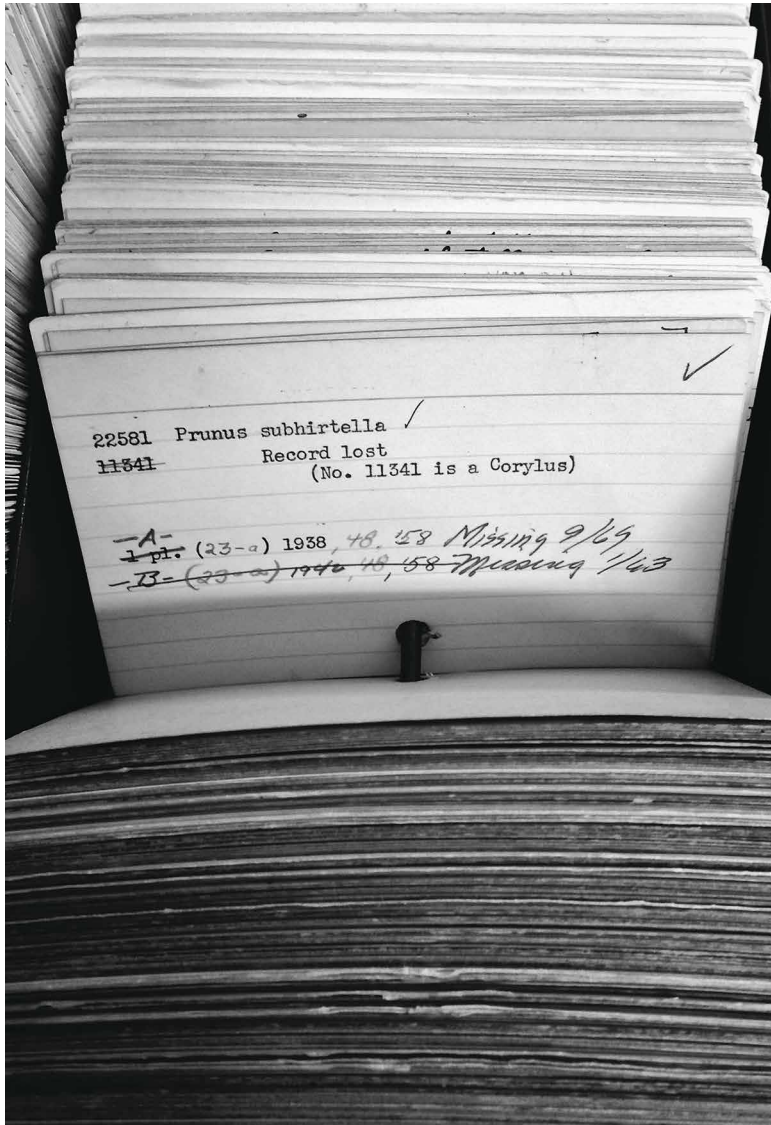 22581 Prunus subhirtella ✓
11341 Record lost
(No. 11341 is a Corylus)
-A-
1 pl. (23-a) 1938, 48. '58 Missing 9/69
-B- (23-a) 1946, 48, '58 Missing 1/63